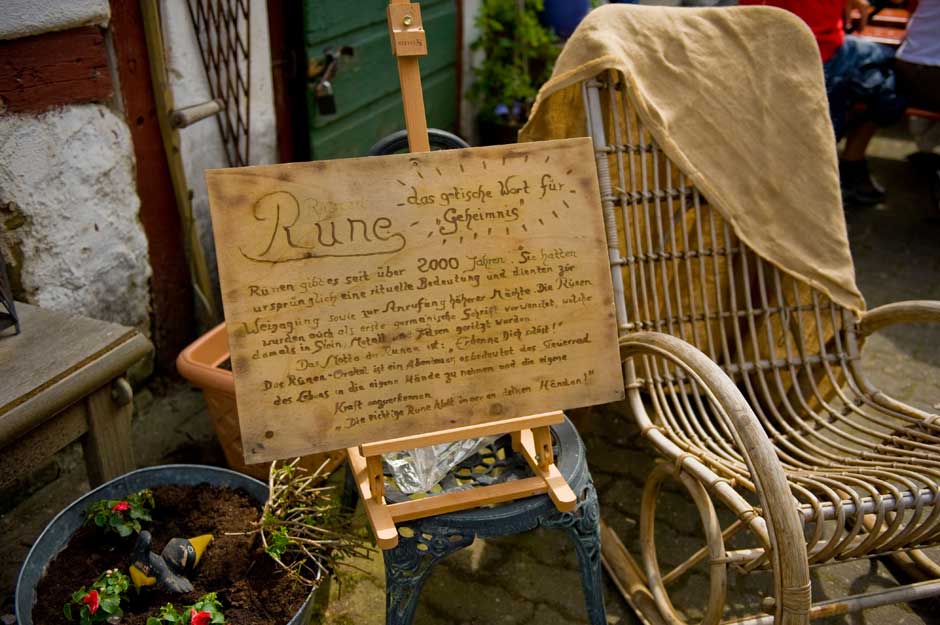 Rune das gotische Wort für
"Geheimnis"
Runen gibt es seit über 2000 Jahren. Sie hatten
ursprünglich eine rituelle Bedeutung und dienten zur
Weissagung sowie zur Anrufung höherer Mächte. Die Runen
wurden auch als erste germanische Schrift verwendet, welche
damals in Stein, Metall und Felsen geritzt wurden.
Das Motto der Runen ist: "Erkenne Dich selbst!"
Das Runen-Orakel ist ein Abenteuer, es bedeutet das Steuerrad
des Lebens in die eigene Hände zu nehmen und die eigene
Kraft anzuerkennen.
"Die richtige Rune liegt immer in deinen Händen!"